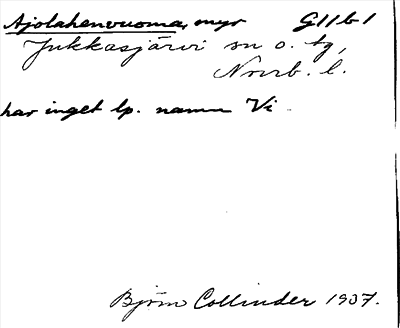 Ajolahenvuoma, myr G11b1
Jukkasjärvi sn o. tg,
Norrb. l.
har inget lp. namn Vi
Björn Collinder 1937.